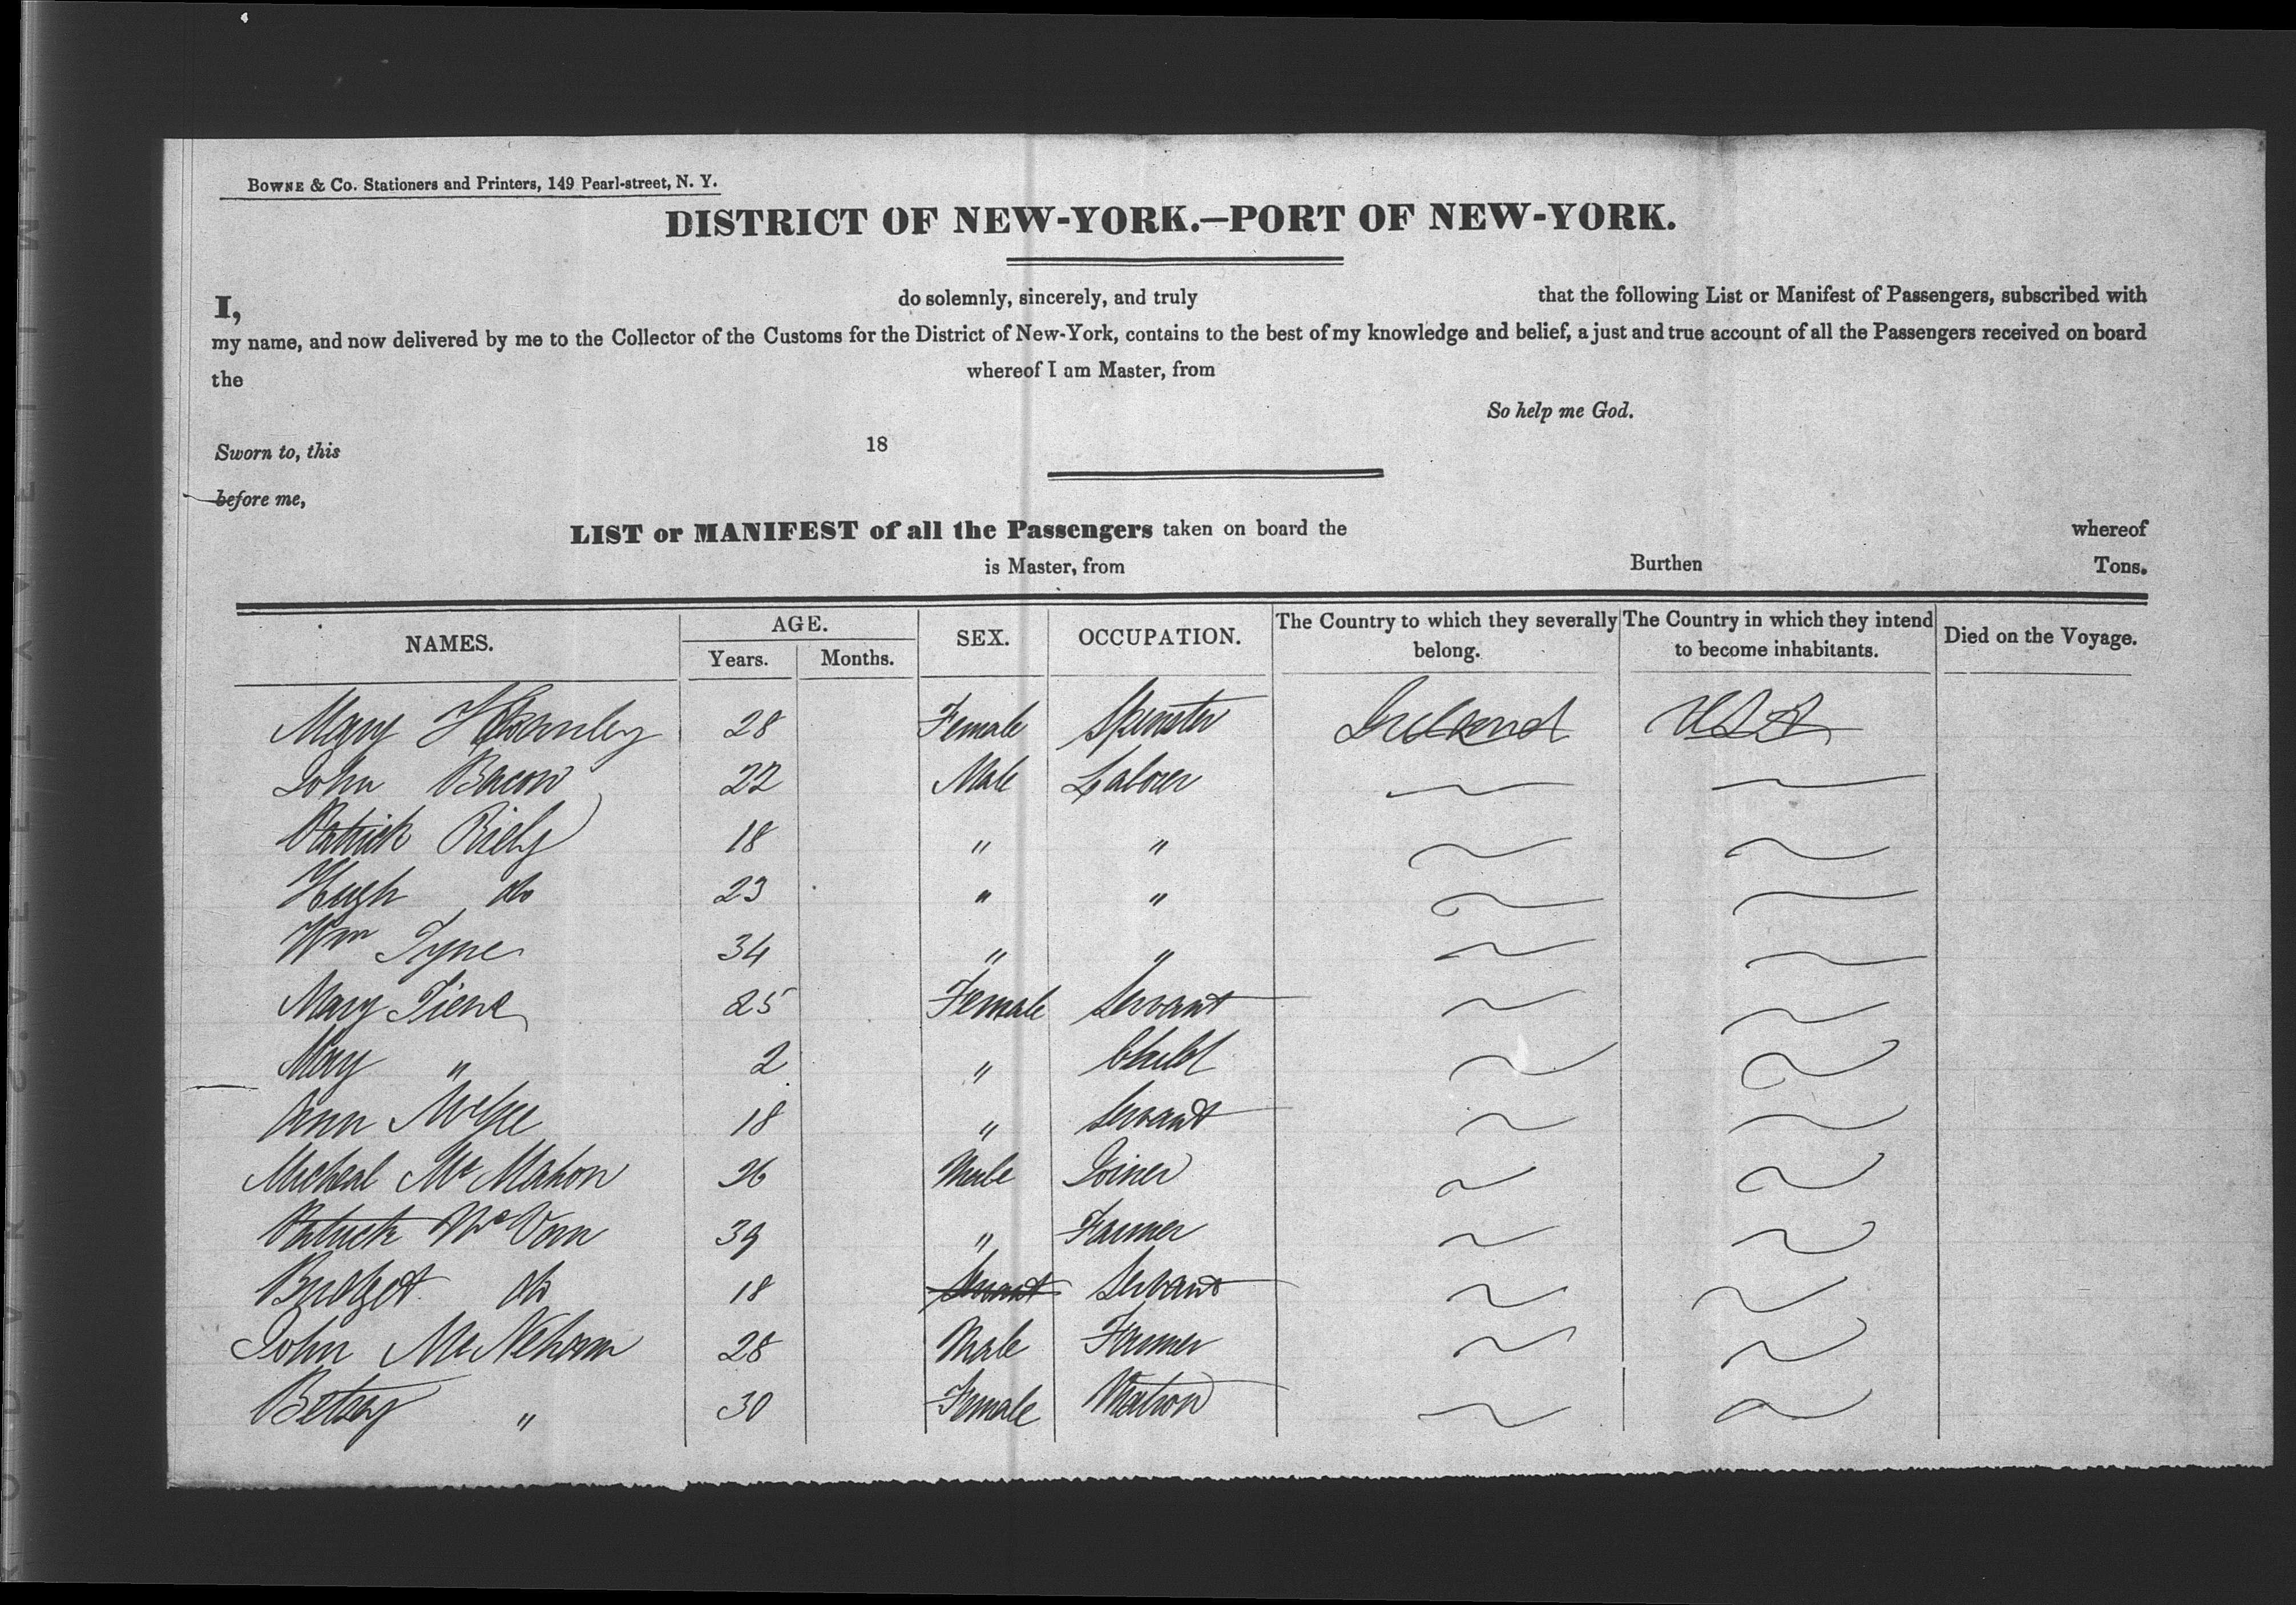 BOWNE & Co. Stationers and Printers, 149 Pearl-street, N. Y.
DISTRICT OF NEW-YORK.—PORT OF NEW-YORK.
I, do solemnly, sincerely, and truly that the following List or Manifest of Passengers, subscribed with
my name, and now delivered by me to the Collector of the Customs for the District of New-York, contains to the best of my knowledge and belief, a just and true account of all the Passengers received on board
the whereof I am Master, from
So help me God.
Sworn to, this 18
before me,
LIST or MANIFEST of all the Passengers taken on board the whereof
is Master, from Burthen Tons.
NAMES. AGE. Years. Months. SEX. OCCUPATION. The Country to which they severally belong. The Country in which they intend to become inhabitants. Died on the Voyage.
Mary 28 Female Spinster Ireland USA
John Bacon 22 Male Laborer
Patrick Riely 18 " "
Hugh do 23 " "
Wm Tyne 34 " "
Mary Tiene 25 Female Servant
Mary " 2 " Child
Ann 18 " Servant
Micheal Mc Mahon 26 Male Joiner
Patrick Mc Van 39 " Farmer
Bridget do 18 Servant Servant
John Mc Neham 28 Male Farmer
Betsey " 30 Female Matron